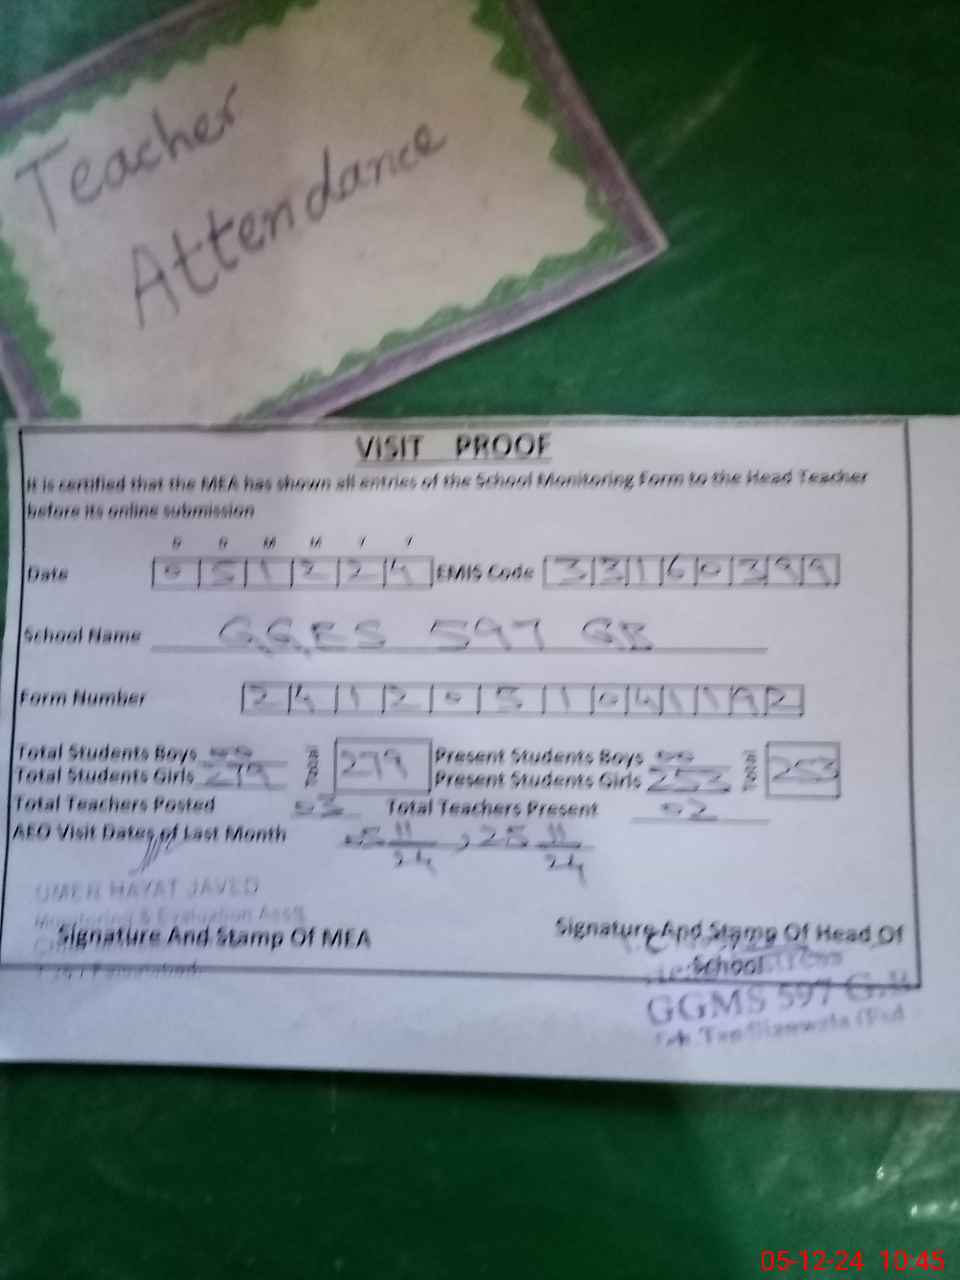 Teacher
Attendance
VISIT PROOF
It is certified that the MEA has shown all entries of the School Monitoring Form to the Head Teacher
before its online submission
D D M M Y Y
Date 0 5 1 2 2 4 EMIS Code 3 3 1 6 0 3 9 9
School Name G.G.E.S 597 GB
Form Number 2 4 1 2 0 5 1 0 4 1 1 9 2
Total Students Boys 00 Total 279 Present Students Boys 00 Total 253
Total Students Girls 279 Present Students Girls 253
Total Teachers Posted 03 Total Teachers Present 02
AEO Visit Dates of Last Month 05 11/24 , 25 11/24
UMER HAYAT JAVED
Monitoring & Evaluation Asstt
Signature And Stamp Of MEA Signature And Stamp Of Head Of
School
GGMS 597 G.B
05-12-24 10:45